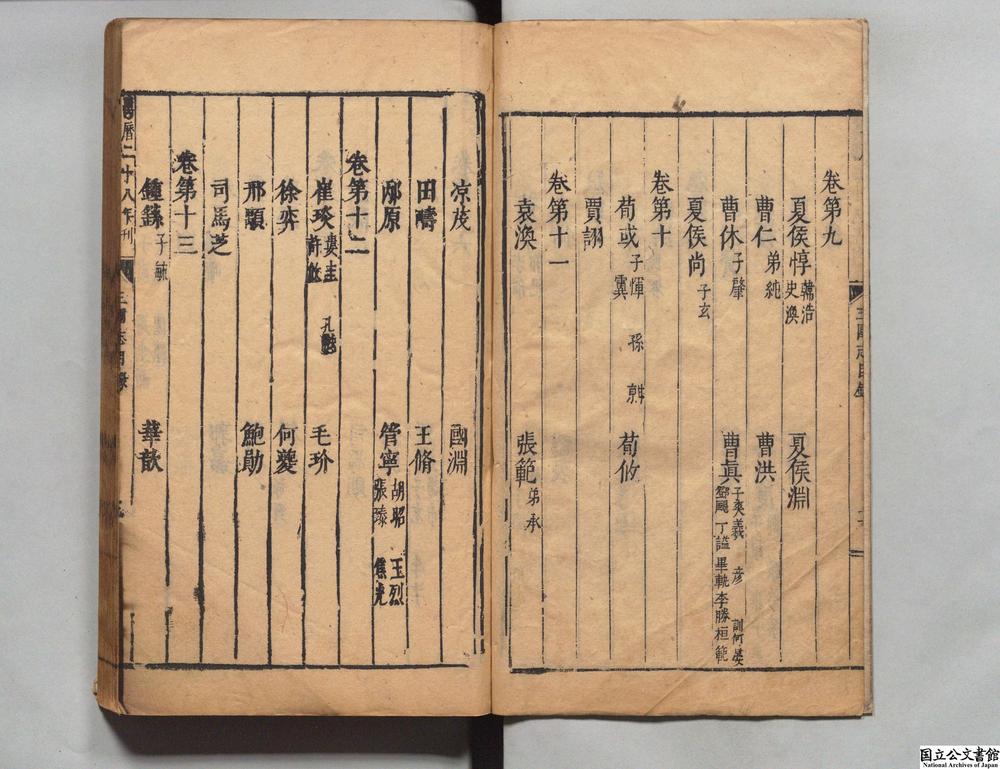 卷第九
夏侯惇 韓浩 史渙 夏侯淵
曹仁 弟純 曹洪
曹休 子肇 曹眞 子爽 羲 彦 訓 何晏 鄧颺 丁謐 畢軌 李勝 桓範
夏侯尚 子玄
卷第十
荀彧 子惲 孫 寓 荀攸
賈詡
卷第十一
袁渙 張範 弟承
三國志目錄
二
凉茂 國淵
田疇 王脩
邴原 管寧 胡昭 王烈 張臶 焦光
卷第十二
崔琰 婁圭 許攸 孔融 毛玠
徐弈 何夔
邢顒 鮑勛
司馬芝
卷第十三
鍾繇 子毓 華歆
萬曆二十八年刊
三國志目錄
国立公文書館
National Archives of Japan